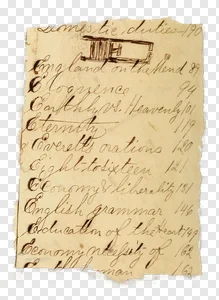 Domestic duties 190
England on the Rhend 89
Eloquence 94
Earthly vs. Heavenly 101
Eternity 119
Everett's orations 120
Eight to sixteen 121
Economy & liberality 131
English grammar 146
Education of the heart 149
Economy necessity of 162
163